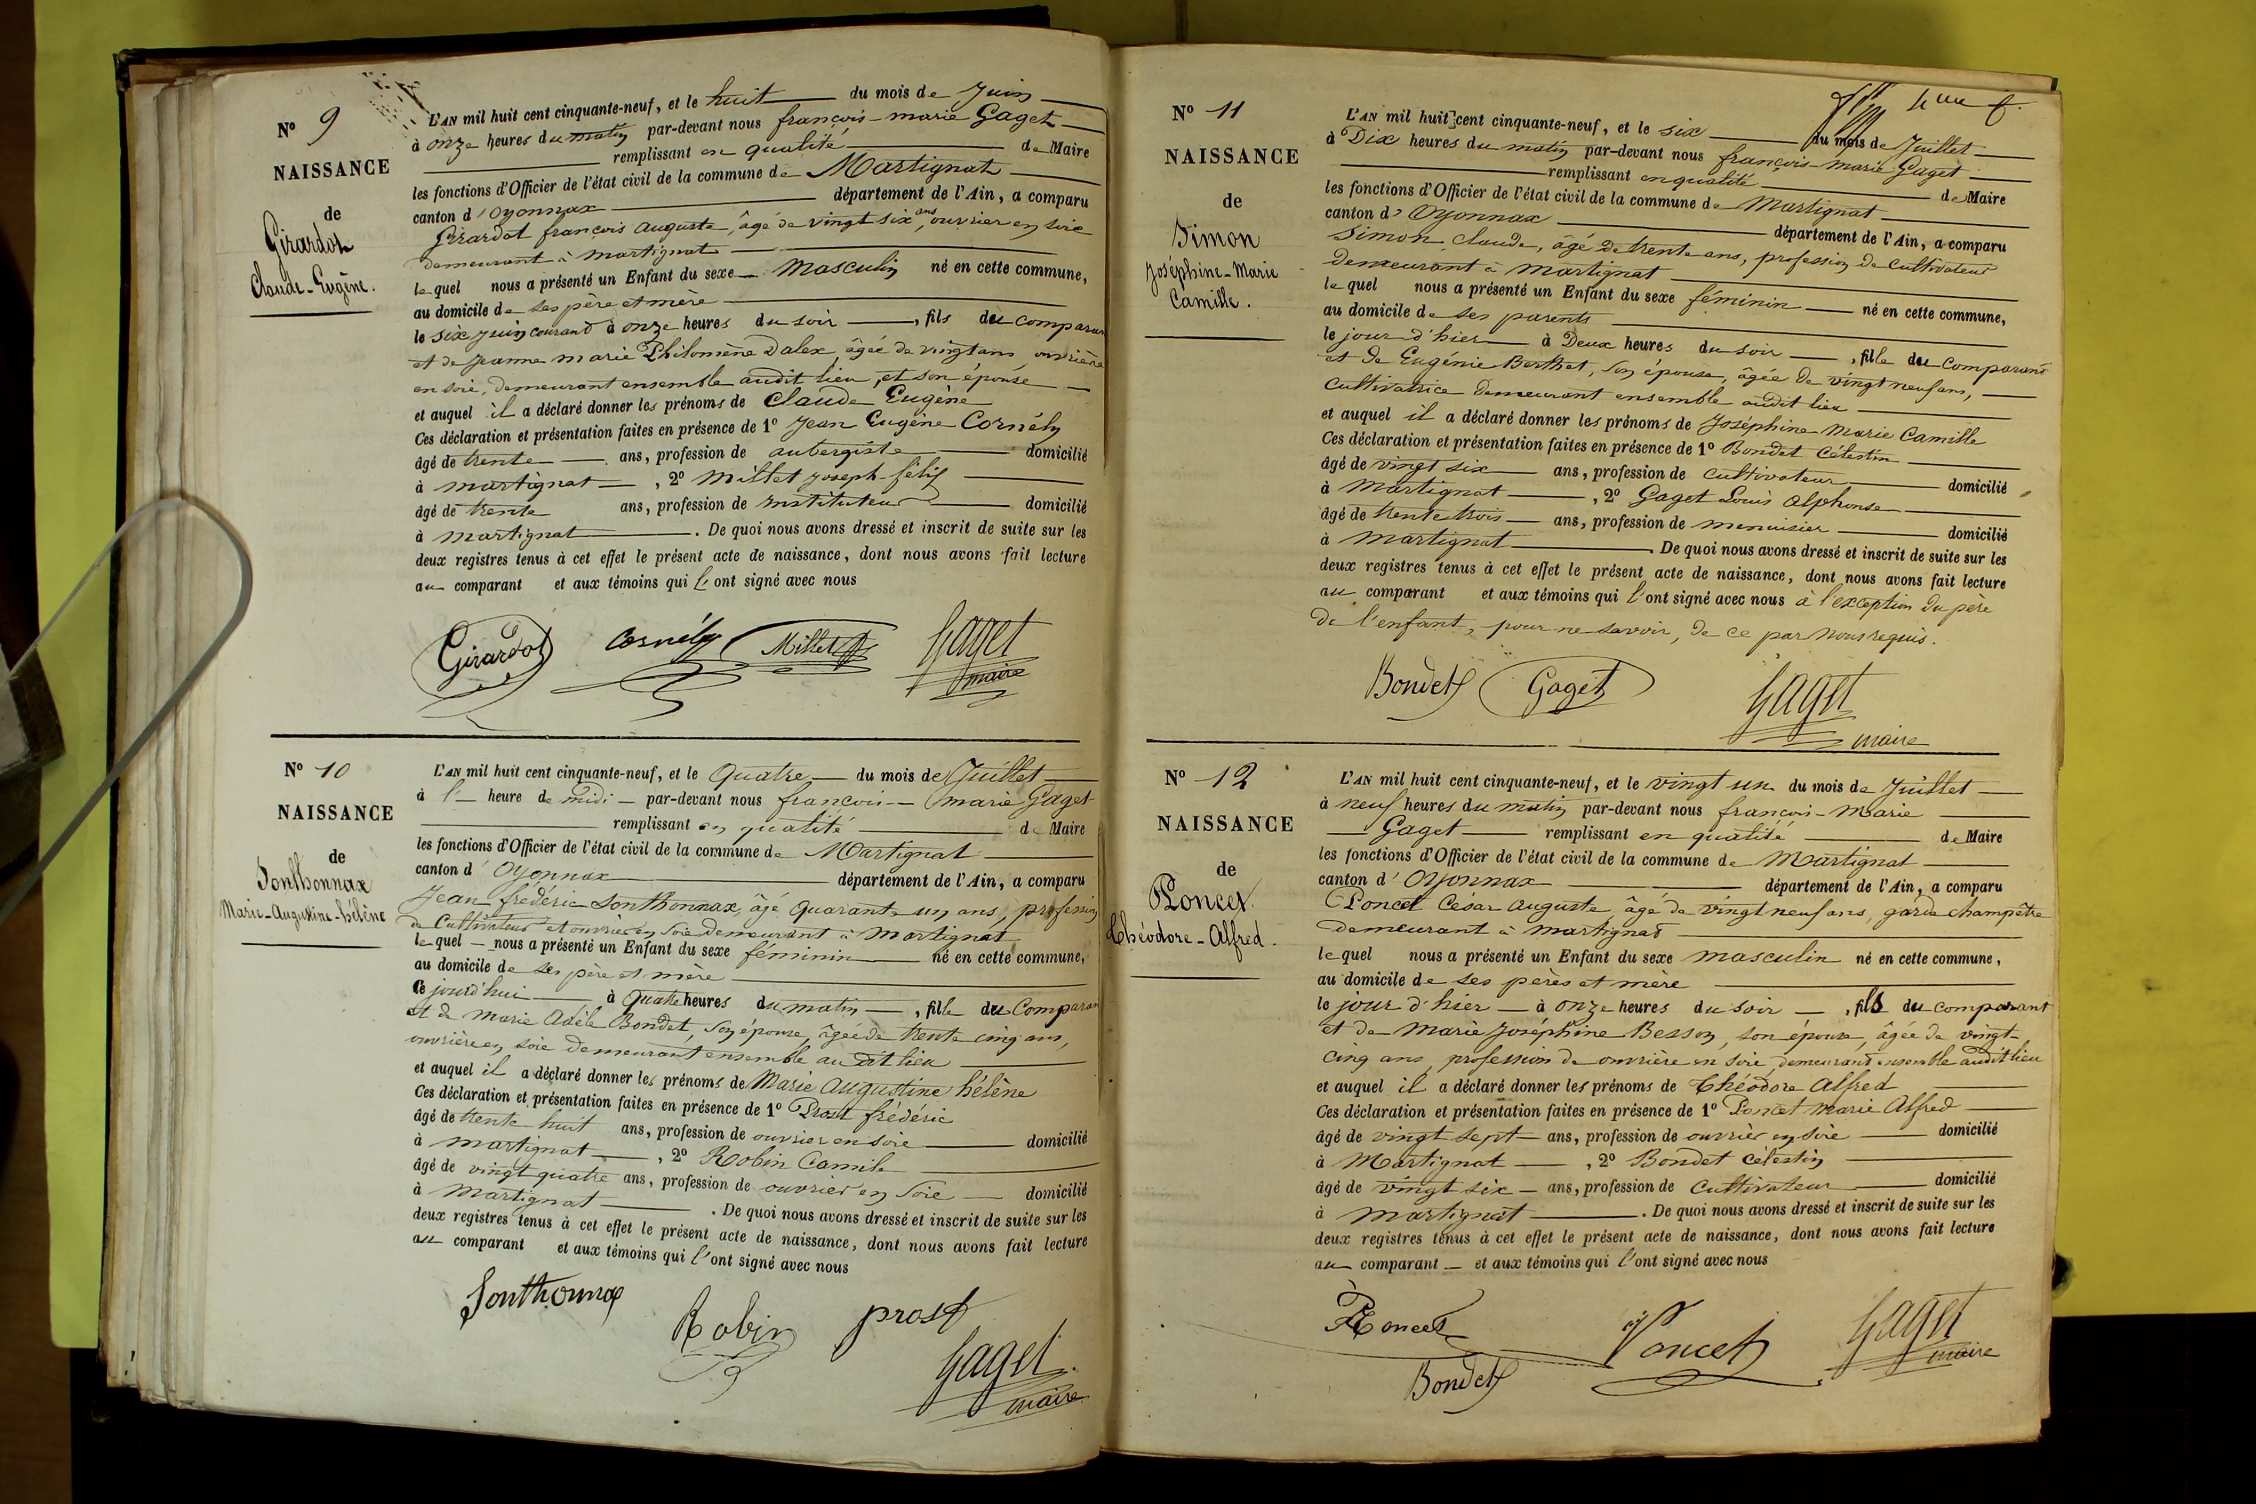 N° 9
NAISSANCE
de
Girardot
Claude-Eugène.
L'AN mil huit cent cinquante-neuf, et le huit du mois de Juin
à onze heures du matin par-devant nous françois-marie Gaget
remplissant en qualité de Maire
les fonctions d'Officier de l'état civil de la commune de Martignat
canton d'Oyonnax département de l'Ain, a comparu
Girardot françois auguste, âgé de vingt six ans, ouvrier en soie
demeurant à martignat
lequel nous a présenté un Enfant du sexe Masculin né en cette commune,
au domicile de ses père et mère
le six juin courant à onze heures du soir, fils du comparant
et de jeanne marie Philomène Dalex, âgée de vingt ans, ouvrière
en soie, demeurant ensemble audit lieu, et son épouse
et auquel il a déclaré donner les prénoms de Claude Eugène
Ces déclaration et présentation faites en présence de 1° Jean Eugène Cornély
âgé de trente ans, profession de aubergiste domicilié
à martignat, 2° Millet joseph félix
âgé de trente ans, profession de instituteur domicilié
à martignat. De quoi nous avons dressé et inscrit de suite sur les
deux registres tenus à cet effet le présent acte de naissance, dont nous avons fait lecture
au comparant et aux témoins qui l'ont signé avec nous
Girardot Cornély Millet Gaget
maire
N° 10
NAISSANCE
de
Sonthonnax
Marie-Augustine-hélène
L'AN mil huit cent cinquante-neuf, et le Quatre du mois de Juillet
à l' heure de midi par-devant nous françois-marie Gaget
remplissant en qualité de Maire
les fonctions d'Officier de l'état civil de la commune de Martignat
canton d'Oyonnax département de l'Ain, a comparu
Jean frédéric Sonthonnax, âgé quarante un ans, profession
de Cultivateur et ouvrier en soie demeurant à Martignat
lequel nous a présenté un Enfant du sexe féminin né en cette commune,
au domicile de ses père et mère
ce jourd'hui à Quatre heures du matin, fille du Comparant
et de Marie Adèle Bondet, son épouse, âgée de trente cinq ans,
ouvrière en soie demeurant ensemble au dit lieu
et auquel il a déclaré donner les prénoms de Marie augustine hélène
Ces déclaration et présentation faites en présence de 1° Prost frédéric
âgé de trente huit ans, profession de ouvrier en soie domicilié
à martignat, 2° Robin Camile
âgé de vingt quatre ans, profession de ouvrier en soie domicilié
à Martignat. De quoi nous avons dressé et inscrit de suite sur les
deux registres tenus à cet effet le présent acte de naissance, dont nous avons fait lecture
au comparant et aux témoins qui l'ont signé avec nous
Sonthonnax
Robin prost
Gaget
maire
N° 11
NAISSANCE
de
Simon
Joséphine-Marie
Camille.
L'AN mil huit cent cinquante-neuf, et le six du mois de Juillet
à Dix heures du matin par-devant nous françois-marie Gaget
remplissant en qualité de Maire
les fonctions d'Officier de l'état civil de la commune de Martignat
canton d'Oyonnax département de l'Ain, a comparu
Simon Claude, âgé de trente ans, profession de cultivateur
demeurant à martignat
lequel nous a présenté un Enfant du sexe féminin né en cette commune,
au domicile de ses parents
le jour d'hier à Deux heures du soir, fille du comparant
et de Eugénie Berthet, son épouse, âgée de vingt neuf ans,
Cultivatrice demeurant ensemble audit lieu
et auquel il a déclaré donner les prénoms de Joséphine Marie Camille
Ces déclaration et présentation faites en présence de 1° Bondet Célestin
âgé de vingt six ans, profession de cultivateur domicilié
à Martignat, 2° Gaget Louis Alphonse
âgé de trente trois ans, profession de menuisier domicilié
à martignat. De quoi nous avons dressé et inscrit de suite sur les
deux registres tenus à cet effet le présent acte de naissance, dont nous avons fait lecture
au comparant et aux témoins qui l'ont signé avec nous à l'exception du père
de l'enfant, pour ne savoir, de ce par nous requis.
Bondet Gaget Gaget
maire
N° 12
NAISSANCE
de
Poncet
Théodore-Alfred.
L'AN mil huit cent cinquante-neuf, et le vingt un du mois de Juillet
à neuf heures du matin par-devant nous françois-Marie
Gaget remplissant en qualité de Maire
les fonctions d'Officier de l'état civil de la commune de Martignat
canton d'Oyonnax département de l'Ain, a comparu
Poncet César auguste, âgé de vingt neuf ans, garde champêtre
demeurant à martignat
lequel nous a présenté un Enfant du sexe masculin né en cette commune,
au domicile de ses pères et mère
le jour d'hier à onze heures du soir, fils du comparant
et de Marie Joséphine Besson, son épouse, âgée de vingt-
cinq ans, profession de ouvrière en soie, demeurant ensemble audit lieu
et auquel il a déclaré donner les prénoms de Théodore Alfred
Ces déclaration et présentation faites en présence de 1° Poncet Marie Alfred
âgé de vingt sept ans, profession de ouvrier en soie domicilié
à Martignat, 2° Bondet Célestin
âgé de vingt six ans, profession de Cultivateur domicilié
à martignat. De quoi nous avons dressé et inscrit de suite sur les
deux registres tenus à cet effet le présent acte de naissance, dont nous avons fait lecture
au comparant et aux témoins qui l'ont signé avec nous
Poncet Poncet Gaget
maire
Bondet